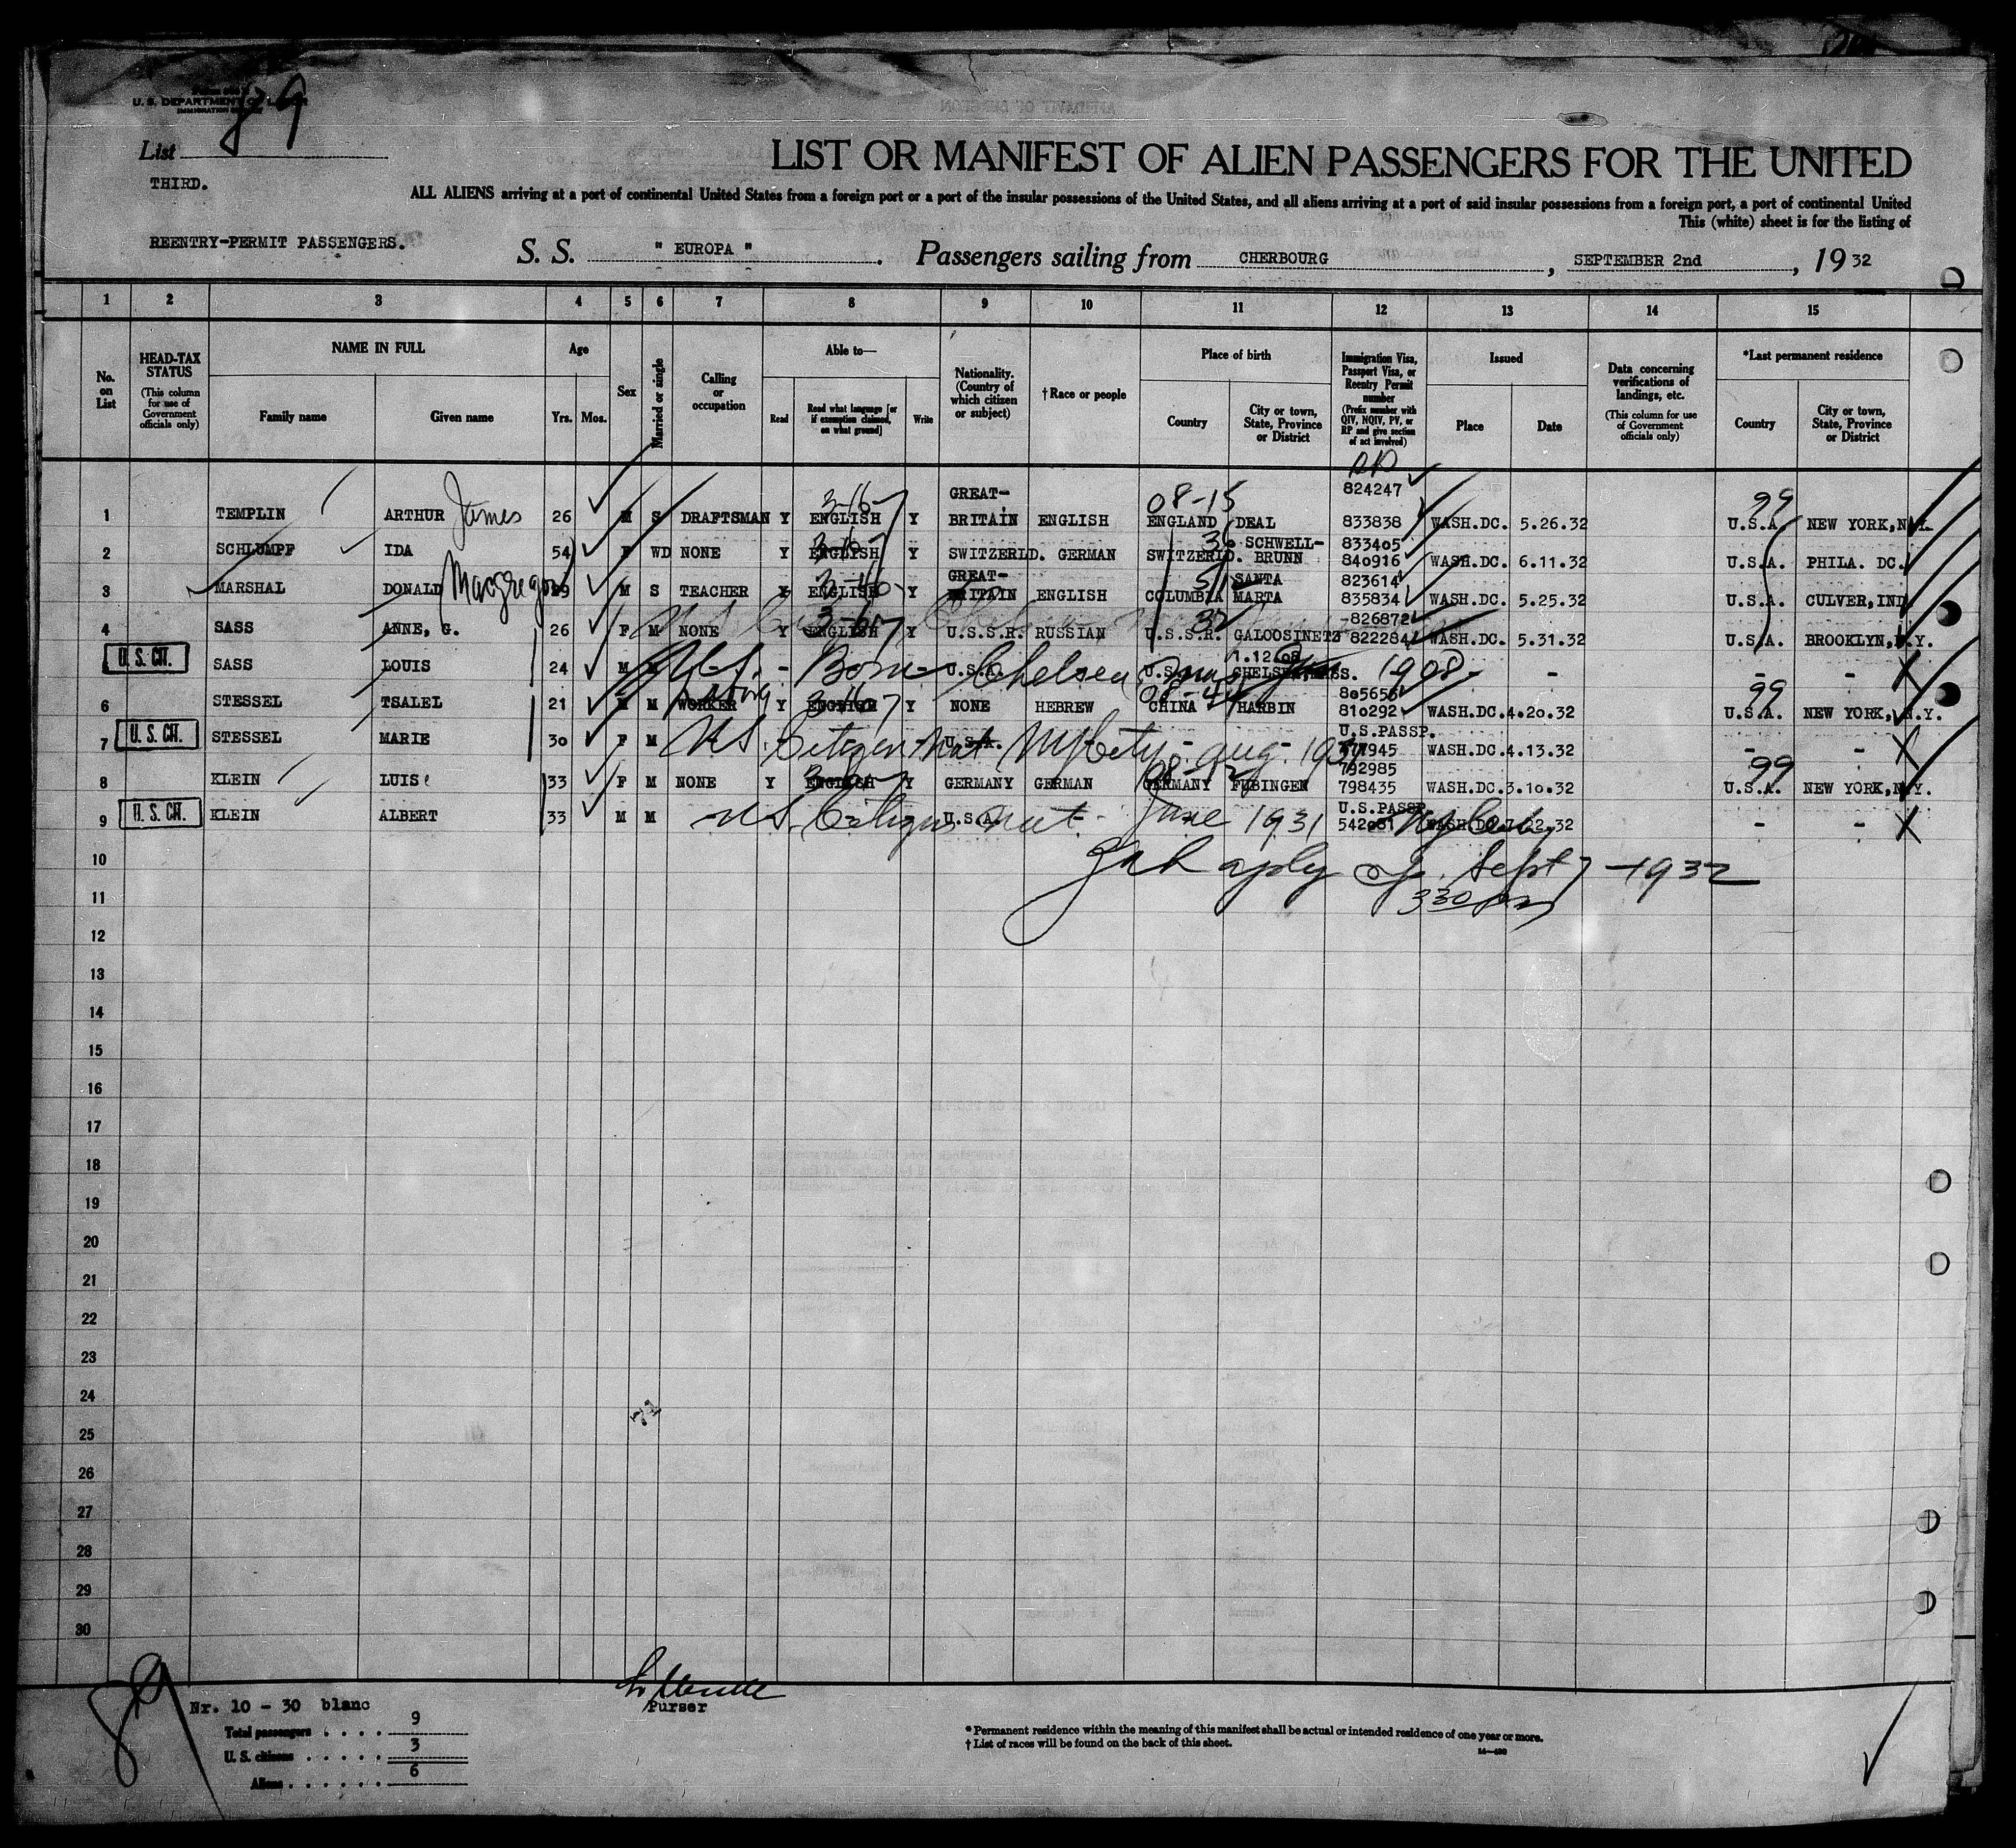 U. S. DEPARTMENT OF LABOR
IMMIGRATION SERVICE
List 89
THIRD.
LIST OR MANIFEST OF ALIEN PASSENGERS FOR THE UNITED
ALL ALIENS arriving at a port of continental United States from a foreign port or a port of the insular possessions of the United States, and all aliens arriving at a port of said insular possessions from a foreign port, a port of continental United
This (white) sheet is for the listing of
REENTRY-PERMIT PASSENGERS. S. S. " EUROPA " . Passengers sailing from CHERBOURG , SEPTEMBER 2nd , 19 32
1 2 3 4 5 6 7 8 9 10 11 12 13 14 15
No. on List
HEAD-TAX STATUS (This column for use of Government officials only)
NAME IN FULL Family name Given name
Age Yrs. Mos.
Sex
Married or single
Calling or occupation
Able to— Read Read what language [or if exemption claimed, on what ground] Write
Nationality. (Country of which citizen or subject)
†Race or people
Place of birth Country City or town, State, Province or District
Immigration Visa, Passport Visa, or Reentry Permit number (Prefix number with QIV, NQIV, PV, or RP and give section of act involved)
Issued Place Date
Data concerning verifications of landings, etc. (This column for use of Government officials only)
*Last permanent residence Country City or town, State, Province or District
RP
GREAT- 08-15 824247 99
1 TEMPLIN ARTHUR James 26 M S DRAFTSMAN Y ENGLISH Y BRITAIN ENGLISH ENGLAND DEAL 833838 WASH.DC. 5.26.32 U.S.A. NEW YORK,N.Y.
SCHWELL- 833405
2 SCHLUMPF IDA 54 F WD NONE Y ENGLISH Y SWITZERLD. GERMAN SWITZERLD. BRUNN 840916 WASH.DC. 6.11.32 U.S.A. PHILA. DC.
GREAT- SANTA 823614
3 MARSHAL DONALD Macgregor 29 M S TEACHER Y ENGLISH Y BRITAIN ENGLISH COLUMBIA MARTA 835834 WASH.DC. 5.25.32 U.S.A. CULVER,IND.
826872
4 SASS ANNE, G. 26 F M NONE Y ENGLISH Y U.S.S.R. RUSSIAN U.S.S.R. GALOOSINETZ 822284 WASH.DC. 5.31.32 U.S.A. BROOKLYN,N.Y.
U. S. CIT. SASS LOUIS 24 M M U.S. - Born - U.S.A. Chelsea Mass CHELSEA,MASS. 1908 - - - X
08-44 805656 99
6 STESSEL TSALEL 21 M M WORKER Y ENGLISH Y NONE HEBREW CHINA HARBIN 810292 WASH.DC.4.20.32 U.S.A. NEW YORK, N.Y.
U.S.PASSP.
7 U. S. CIT. STESSEL MARIE 30 F M U.S. Citizen Nat U.S.A. NY City - Aug - 1931 WASH.DC.4.13.32 - - X
792985 99
8 KLEIN LUISE 33 F M NONE Y ENGLISH Y GERMANY GERMAN GERMANY FUBINGEN 798435 WASH.DC.3.10.32 U.S.A. NEW YORK,N.Y.
U.S.PASSP.
9 U. S. CIT. KLEIN ALBERT 33 M M U.S. Citizen U.S.A. nat - June 1931 542081 - - X
10 Sept 7 - 1932
11 330 pm
12
13
14
15
16
17
18
19
20
21
22
23
24
25
26
27
28
29
30
89
Nr. 10 - 30 blanc
Total passengers . . . . 9
U. S. citizens . . . . . 3
Aliens . . . . . . 6
Purser
* Permanent residence within the meaning of this manifest shall be actual or intended residence of one year or more.
† List of races will be found on the back of this sheet.